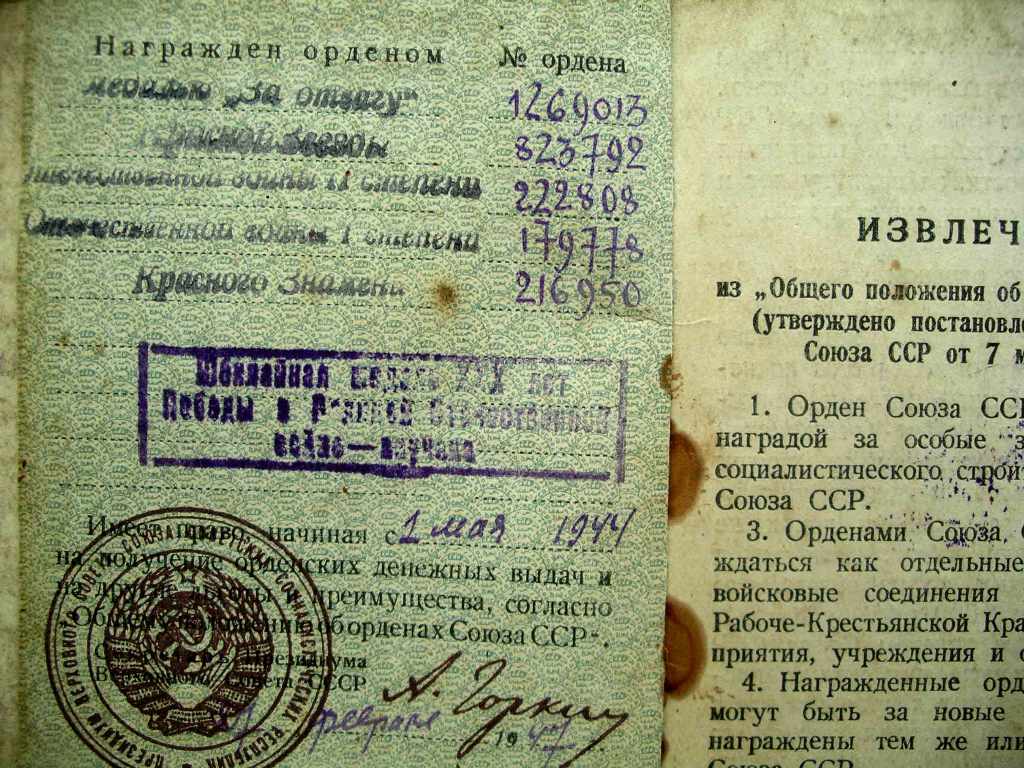 Награжден орденом № ордена
медалью „За отвагу“ 1269013
Красной Звезды 823792
Отечественной войны II степени 222808
Отечественной войны I степени 179778
Красного Знамени 216950
Юбилейная медаль XXX лет
Победы в Великой Отечественной
войне—вручена
Имеет право, начиная с 1 мая 1944
на получение орденских денежных выдач и
на другие льготы и преимущества, согласно
„Общему положению об орденах Союза ССР“.
Секретарь Президиума
Верховного Совета СССР
А. Горкин
февраля 1947
ПРЕЗИДИУМ ВЕРХОВНОГО СОВЕТА СОЮЗА СОВЕТСКИХ СОЦИАЛИСТИЧЕСКИХ РЕСПУБЛИК
ИЗВЛЕЧ
из „Общего положения об
(утверждено постановл
Союза ССР от 7 м
1. Орден Союза ССР
наградой за особые з
социалистического строит
Союза ССР.
3. Орденами Союза
ждаться как отдельные
войсковые соединения
Рабоче-Крестьянской Кра
приятия, учреждения и о
4. Награжденные орд
могут быть за новые
награждены тем же или
Союза ССР.